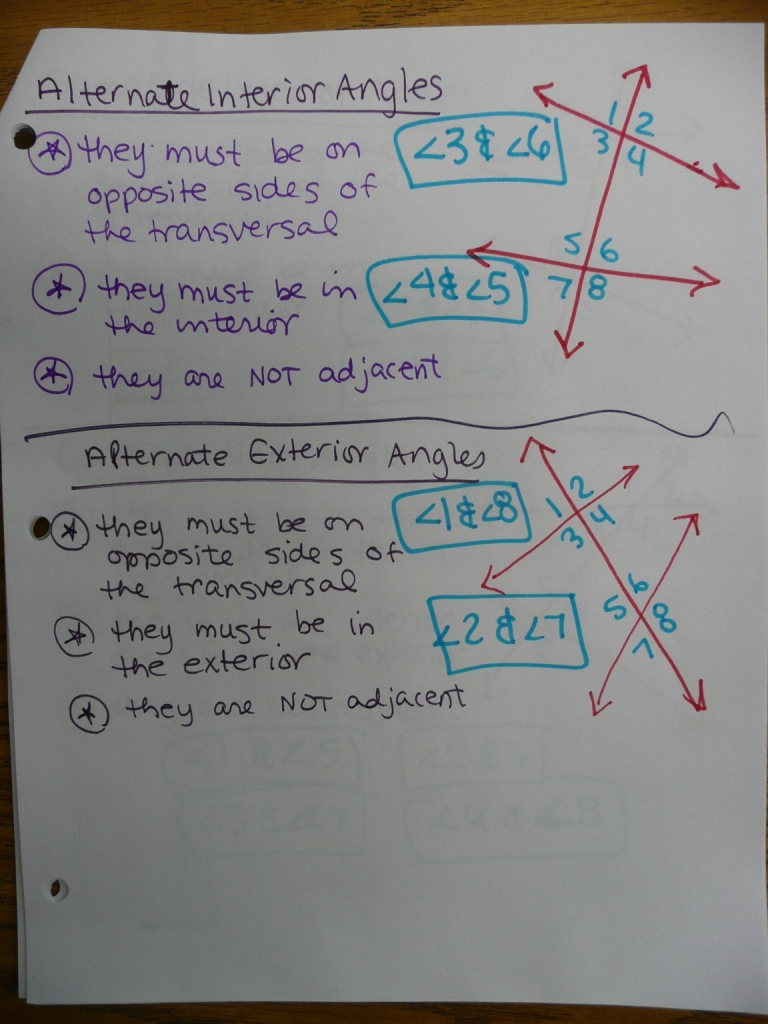 Alternate Interior Angles
they must be on
opposite sides of
the transversal
∠3 & ∠6
1 2
3 4
they must be in
the interior
∠4 & ∠5
5 6
7 8
they are NOT adjacent
Alternate Exterior Angles
they must be on
opposite sides of
the transversal
∠1 & ∠8
1 2
3 4
they must be in
the exterior
∠2 & ∠7
5 6
7 8
they are NOT adjacent